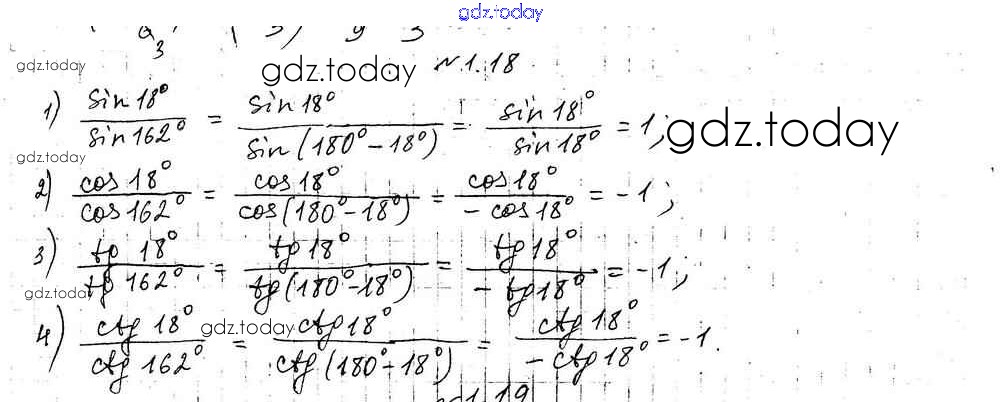 gdz.today
3
gdz.today gdz.today №1.18
1) sin18° / sin162° = sin18° / sin(180°-18°) = sin18° / sin18° = 1; gdz.today
gdz.today
2) cos18° / cos162° = cos18° / cos(180°-18°) = cos18° / -cos18° = -1;
3) tg 18° / tg 162° = tg 18° / tg(180°-18°) = tg18° / -tg18° = -1;
gdz.today
4) ctg 18° / ctg 162° = ctg18° / ctg(180°-18°) = ctg18° / -ctg18° = -1.
gdz.today
1.19